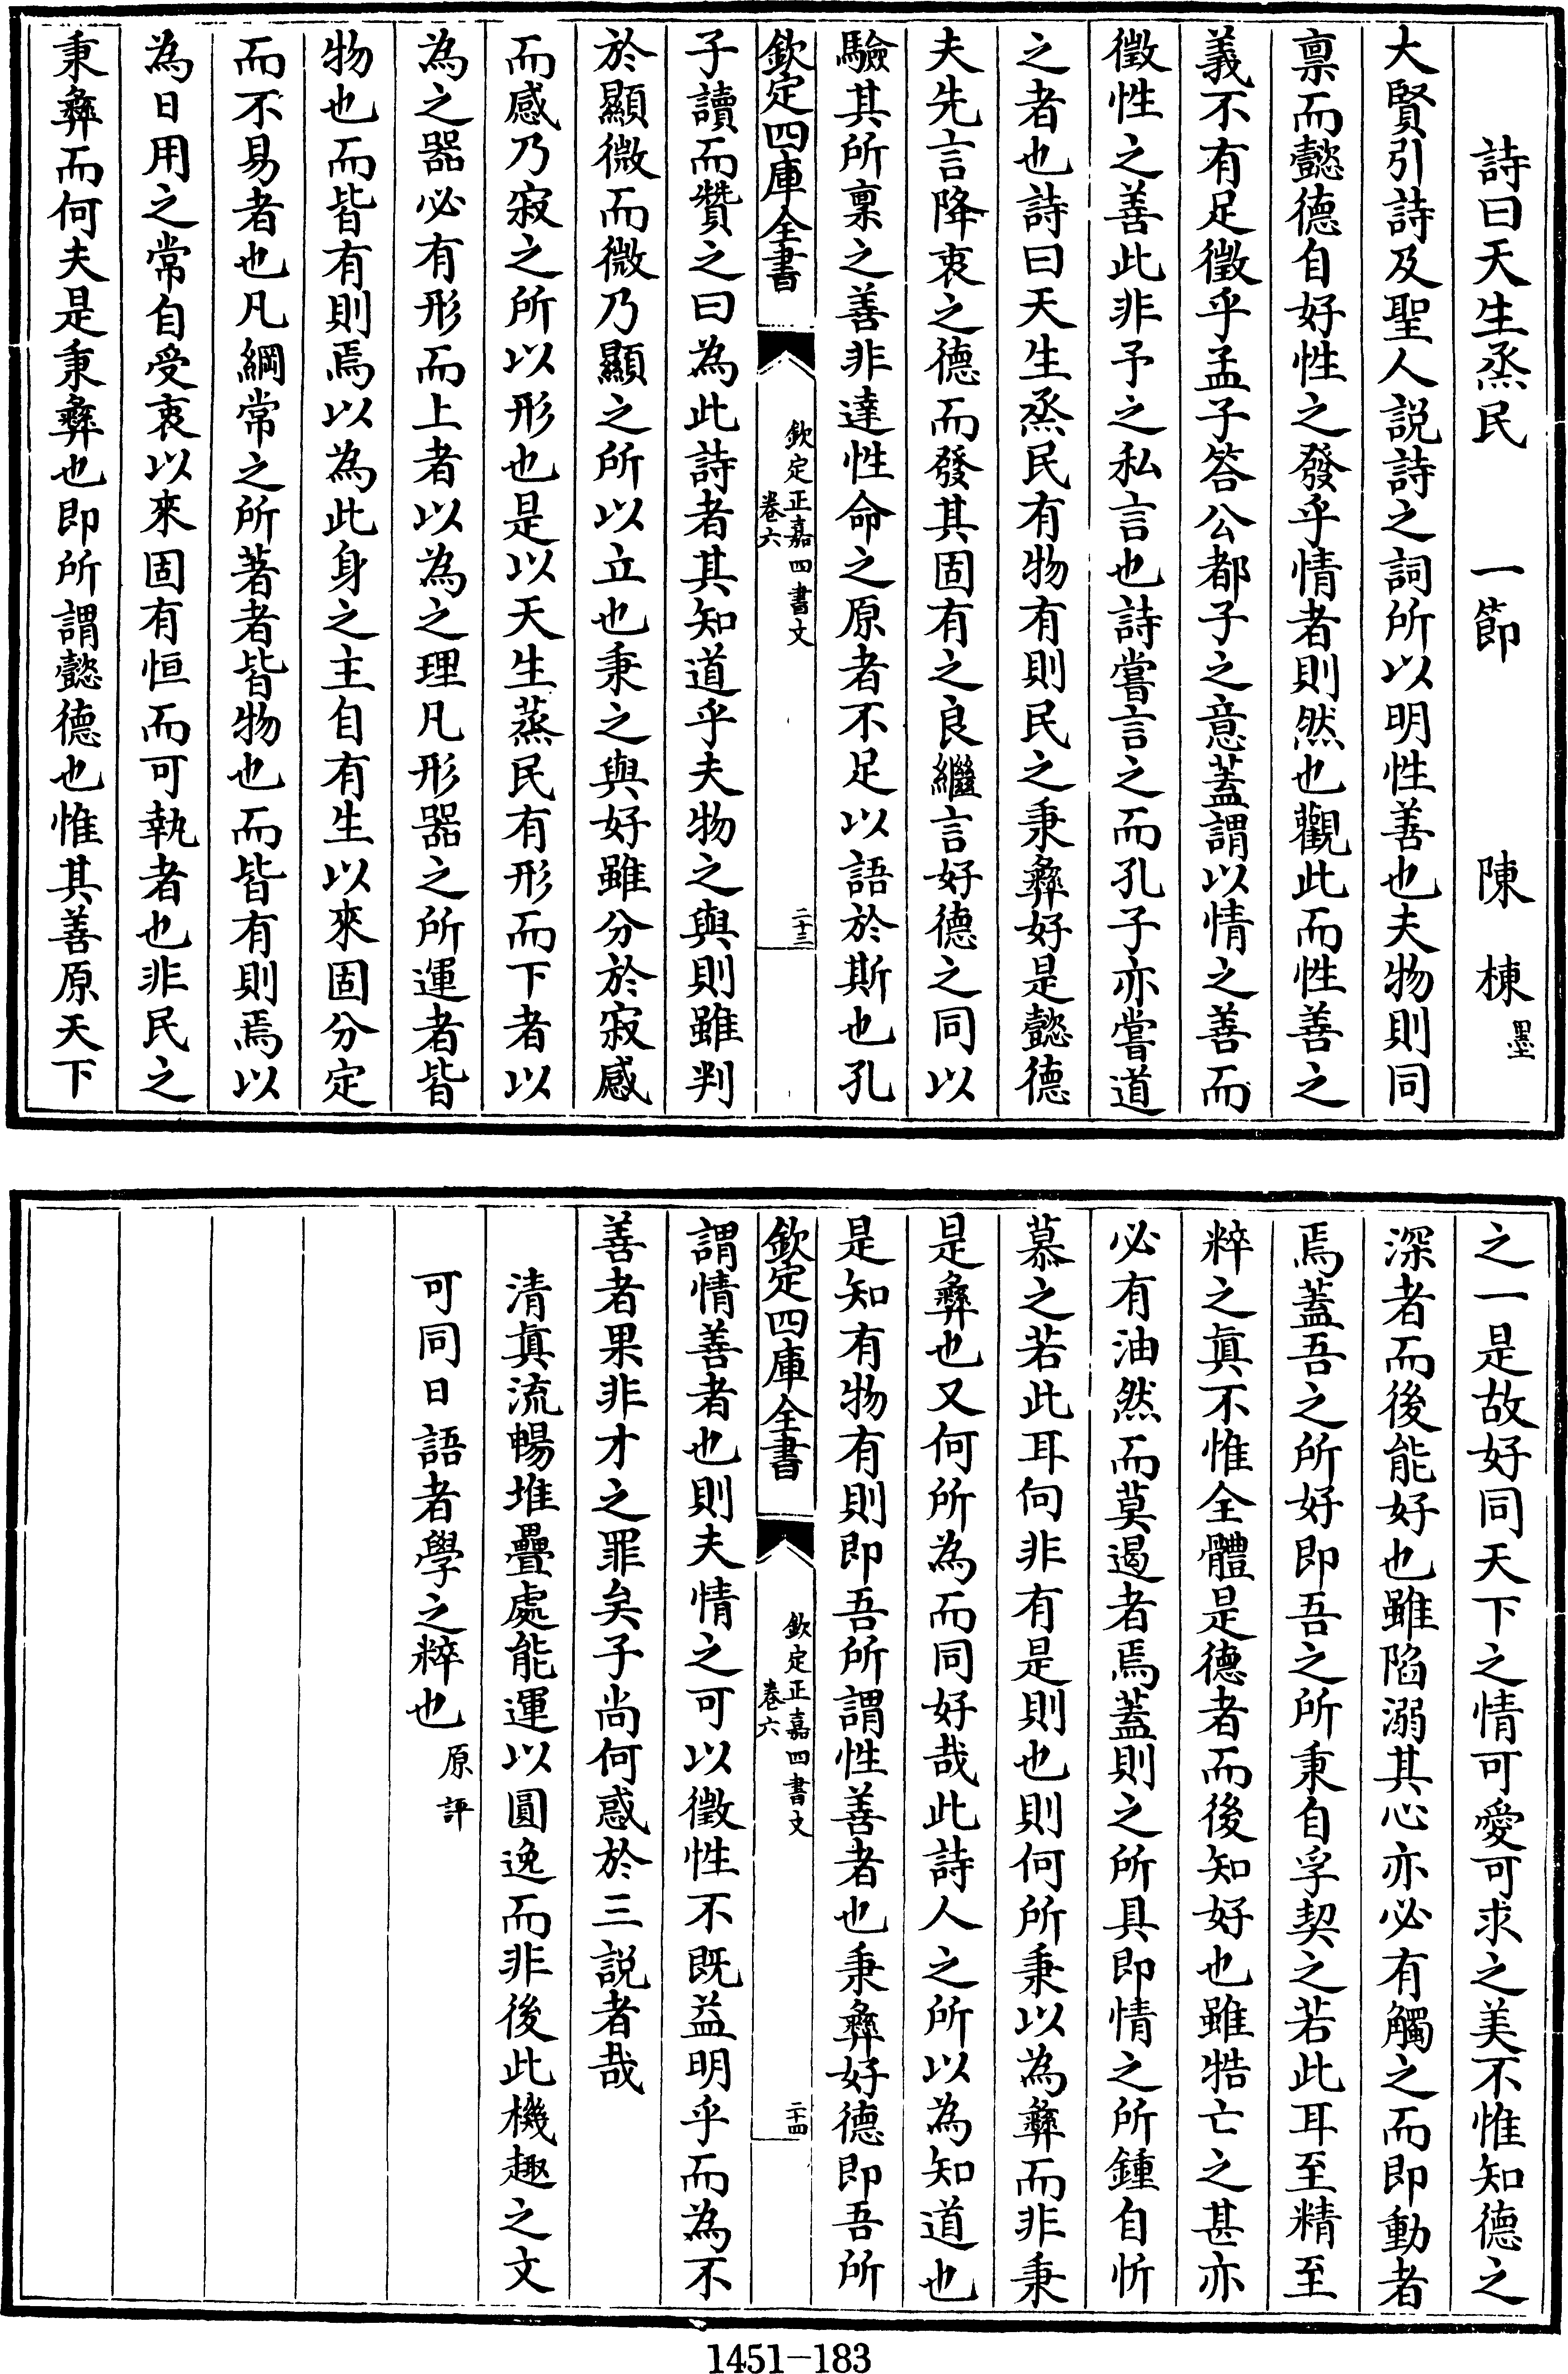 詩曰天生烝民　一節　陳棟墨
大賢引詩及聖人説詩之詞所以明性善也夫物則同
禀而懿德自好性之發乎情者則然也觀此而性善之
義不有足徵乎孟子答公都子之意蓋謂以情之善而
徵性之善此非予之私言也詩嘗言之而孔子亦嘗道
之者也詩曰天生烝民有物有則民之秉彝好是懿德
夫先言降衷之德而發其固有之良繼言好德之同以
驗其所稟之善非達性命之原者不足以語於斯也孔
欽定四庫全書
欽定正嘉四書文
卷六
二十三
子讀而贊之曰為此詩者其知道乎夫物之與則雖判
於顯微而微乃顯之所以立也秉之與好雖分於寂感
而感乃寂之所以形也是以天生蒸民有形而下者以
為之器必有形而上者以為之理凡形器之所運者皆
物也而皆有則焉以為此身之主自有生以來固分定
而不易者也凡綱常之所著者皆物也而皆有則焉以
為日用之常自受衷以來固有恒而可執者也非民之
秉彝而何夫是秉彝也即所謂懿德也惟其善原天下
之一是故好同天下之情可愛可求之美不惟知德之
深者而後能好也雖陷溺其心亦必有觸之而即動者
焉蓋吾之所好即吾之所秉自孚契之若此耳至精至
粹之真不惟全體是德者而後知好也雖牿亡之甚亦
必有油然而莫遏者焉蓋則之所具即情之所鍾自忻
慕之若此耳向非有是則也則何所秉以為彝而非秉
是彝也又何所為而同好哉此詩人之所以為知道也
是知有物有則即吾所謂性善者也秉彝好德即吾所
欽定四庫全書
欽定正嘉四書文
卷六
二十四
謂情善者也則夫情之可以徵性不既益明乎而為不
善者果非才之罪矣子尚何惑於三説者哉
清真流暢堆疊處能運以圓逸而非後此機趣之文
可同日語者學之粹也原評
1451-183